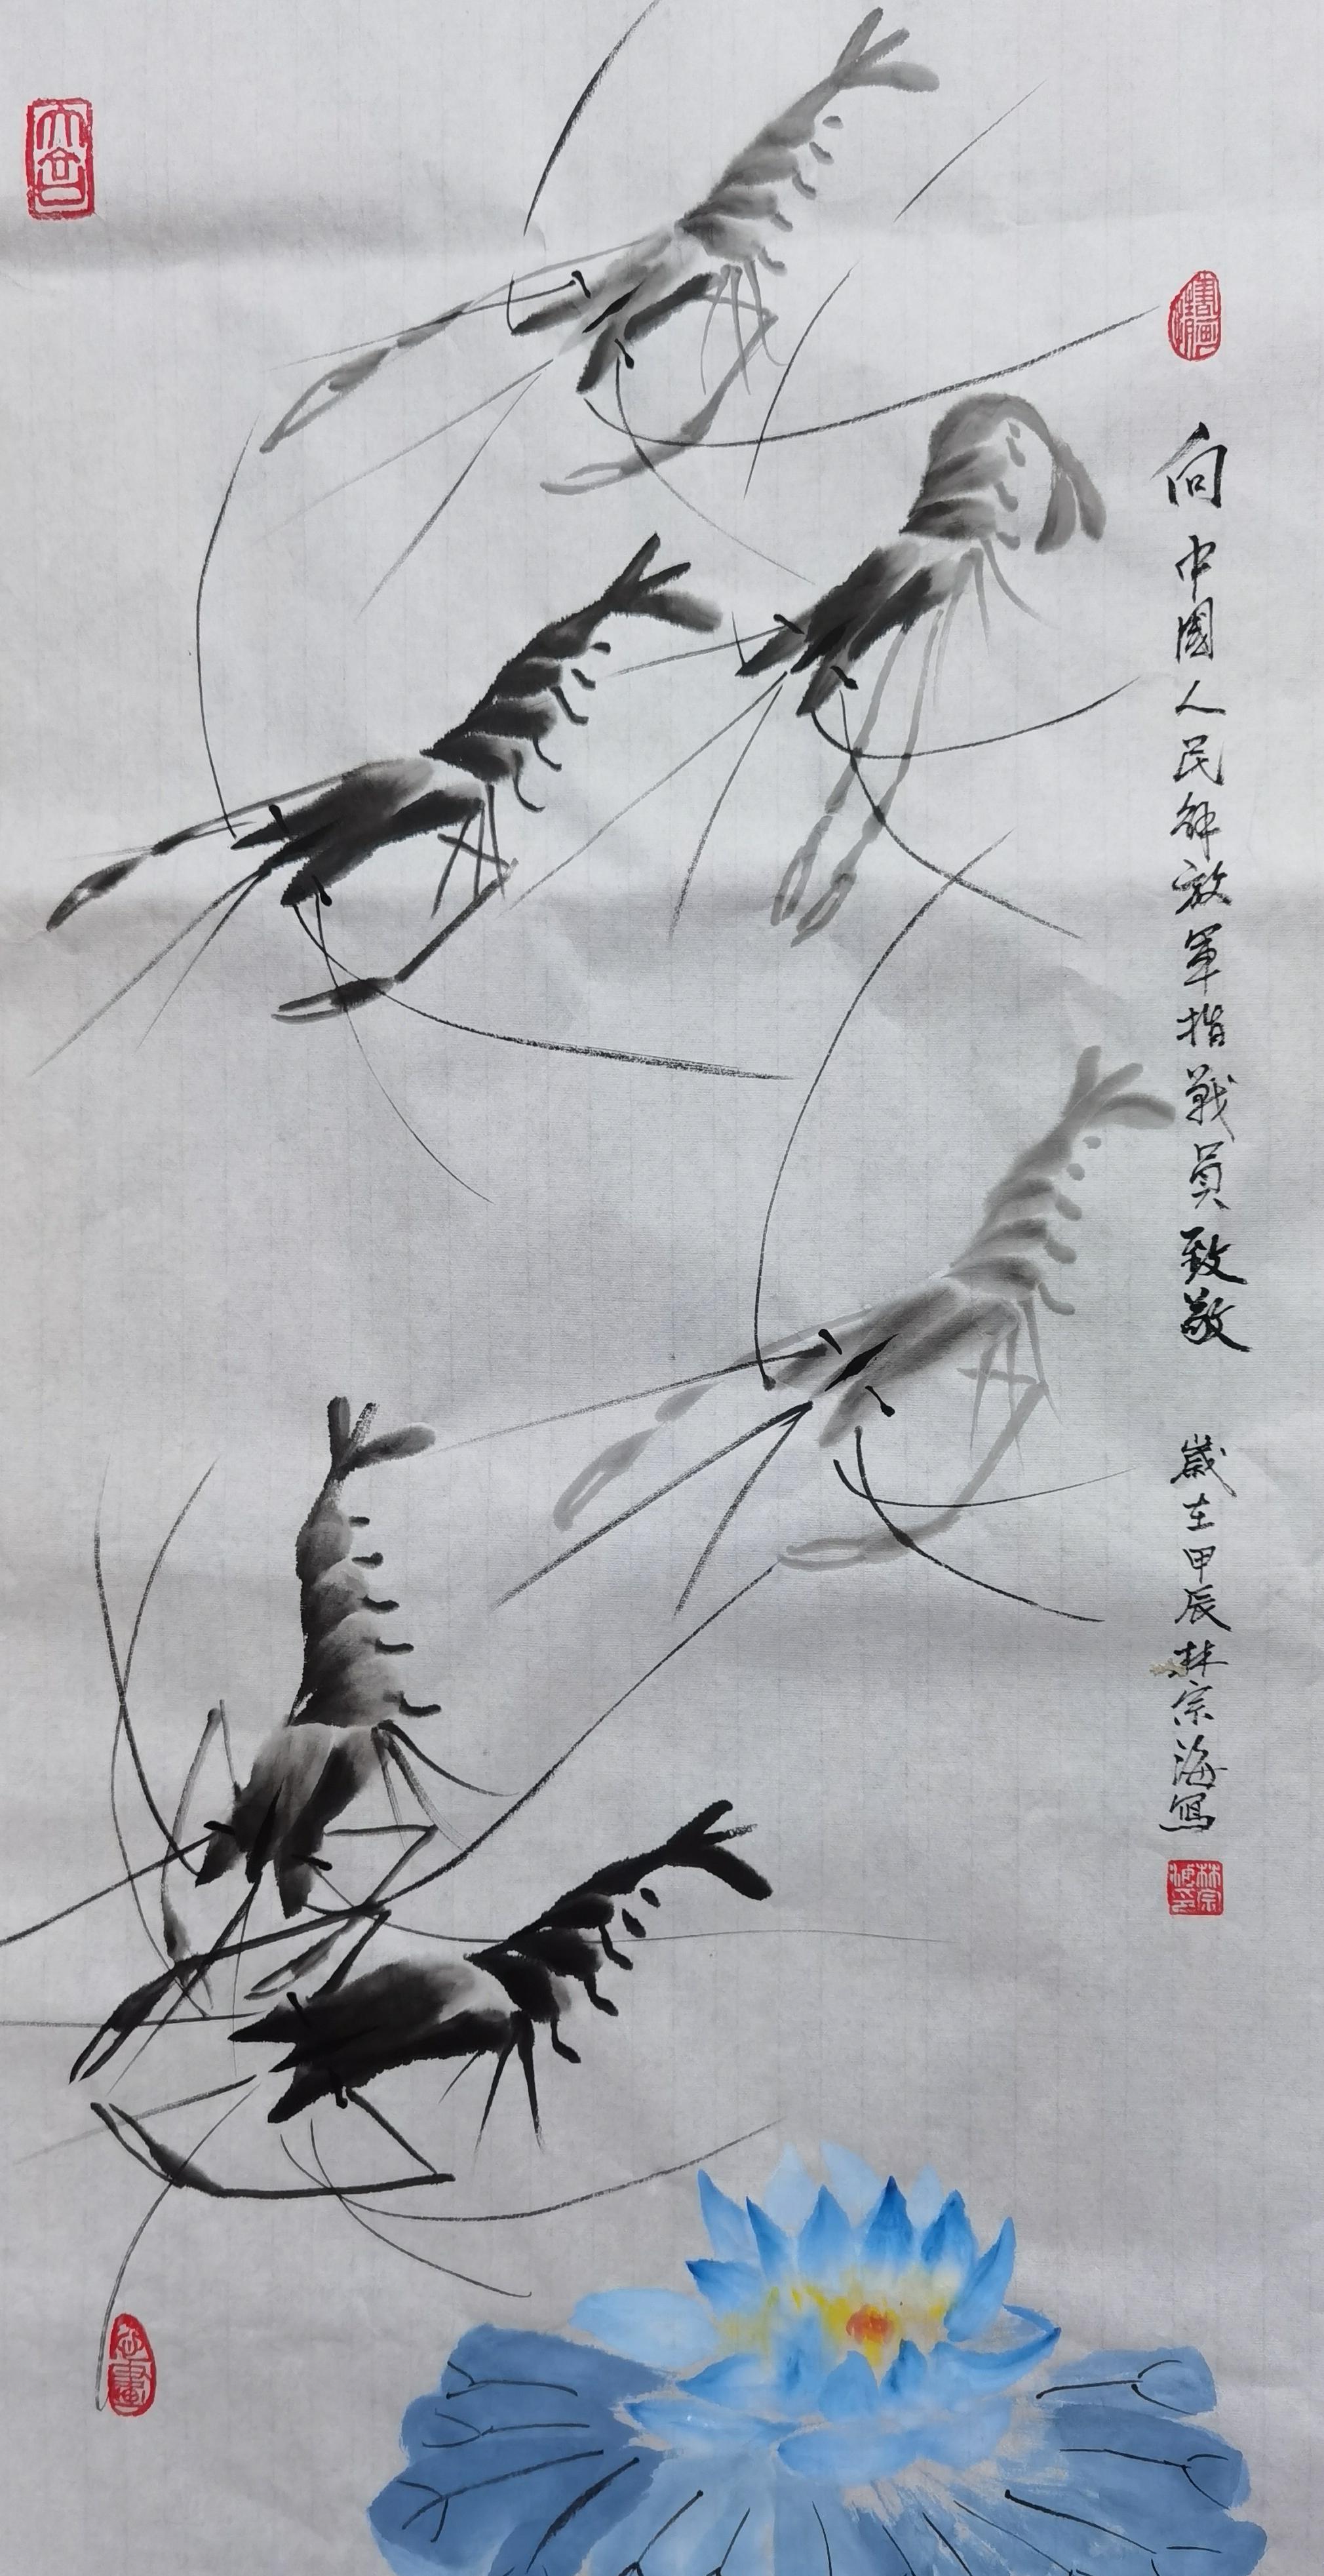 向中國人民解放軍指戰員致敬
歲在甲辰林宗海寫
林宗海印